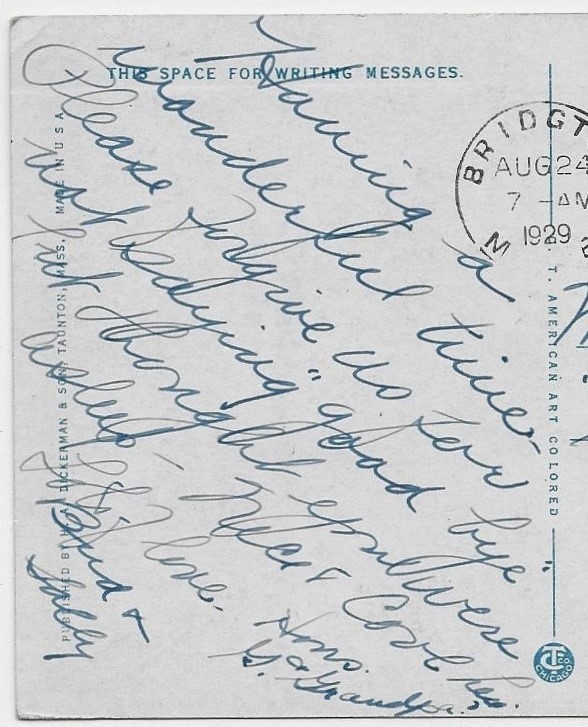 THIS SPACE FOR WRITING MESSAGES.
Having a
wonderful time -
Please forgive us for
not saying "good bye"
but thought you were
asleep - Cove
love.
&
Sally
G. Grandpa.
BRIDGT
AUG 24
7 - AM
1929
M
PUBLISHED BY H. A. DICKERMAN & SON, TAUNTON, MASS. MADE IN U.S.A.
T. AMERICAN ART COLORED
CT CO. CHICAGO